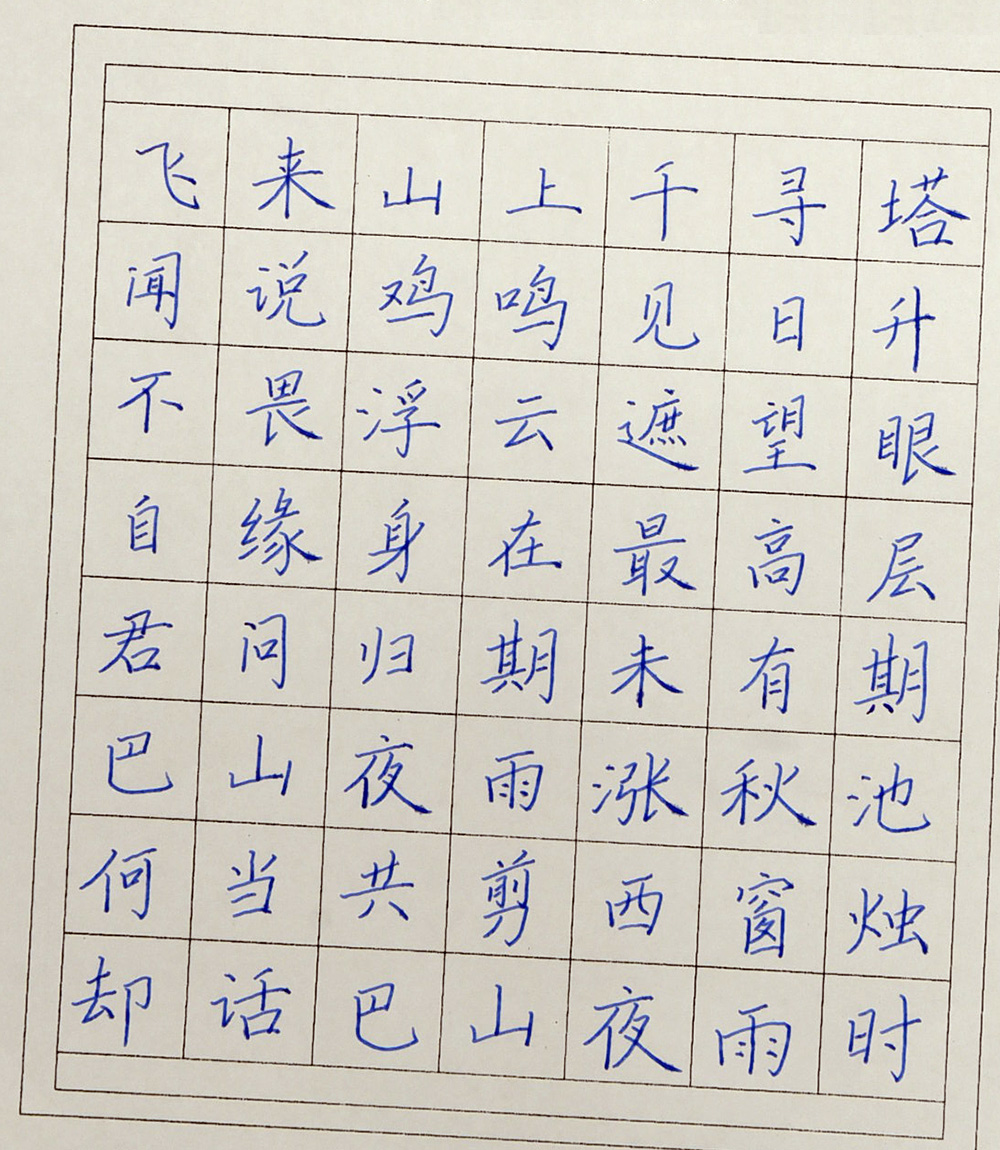 飞来山上千寻塔
闻说鸡鸣见日升
不畏浮云遮望眼
自缘身在最高层
君问归期未有期
巴山夜雨涨秋池
何当共剪西窗烛
却话巴山夜雨时